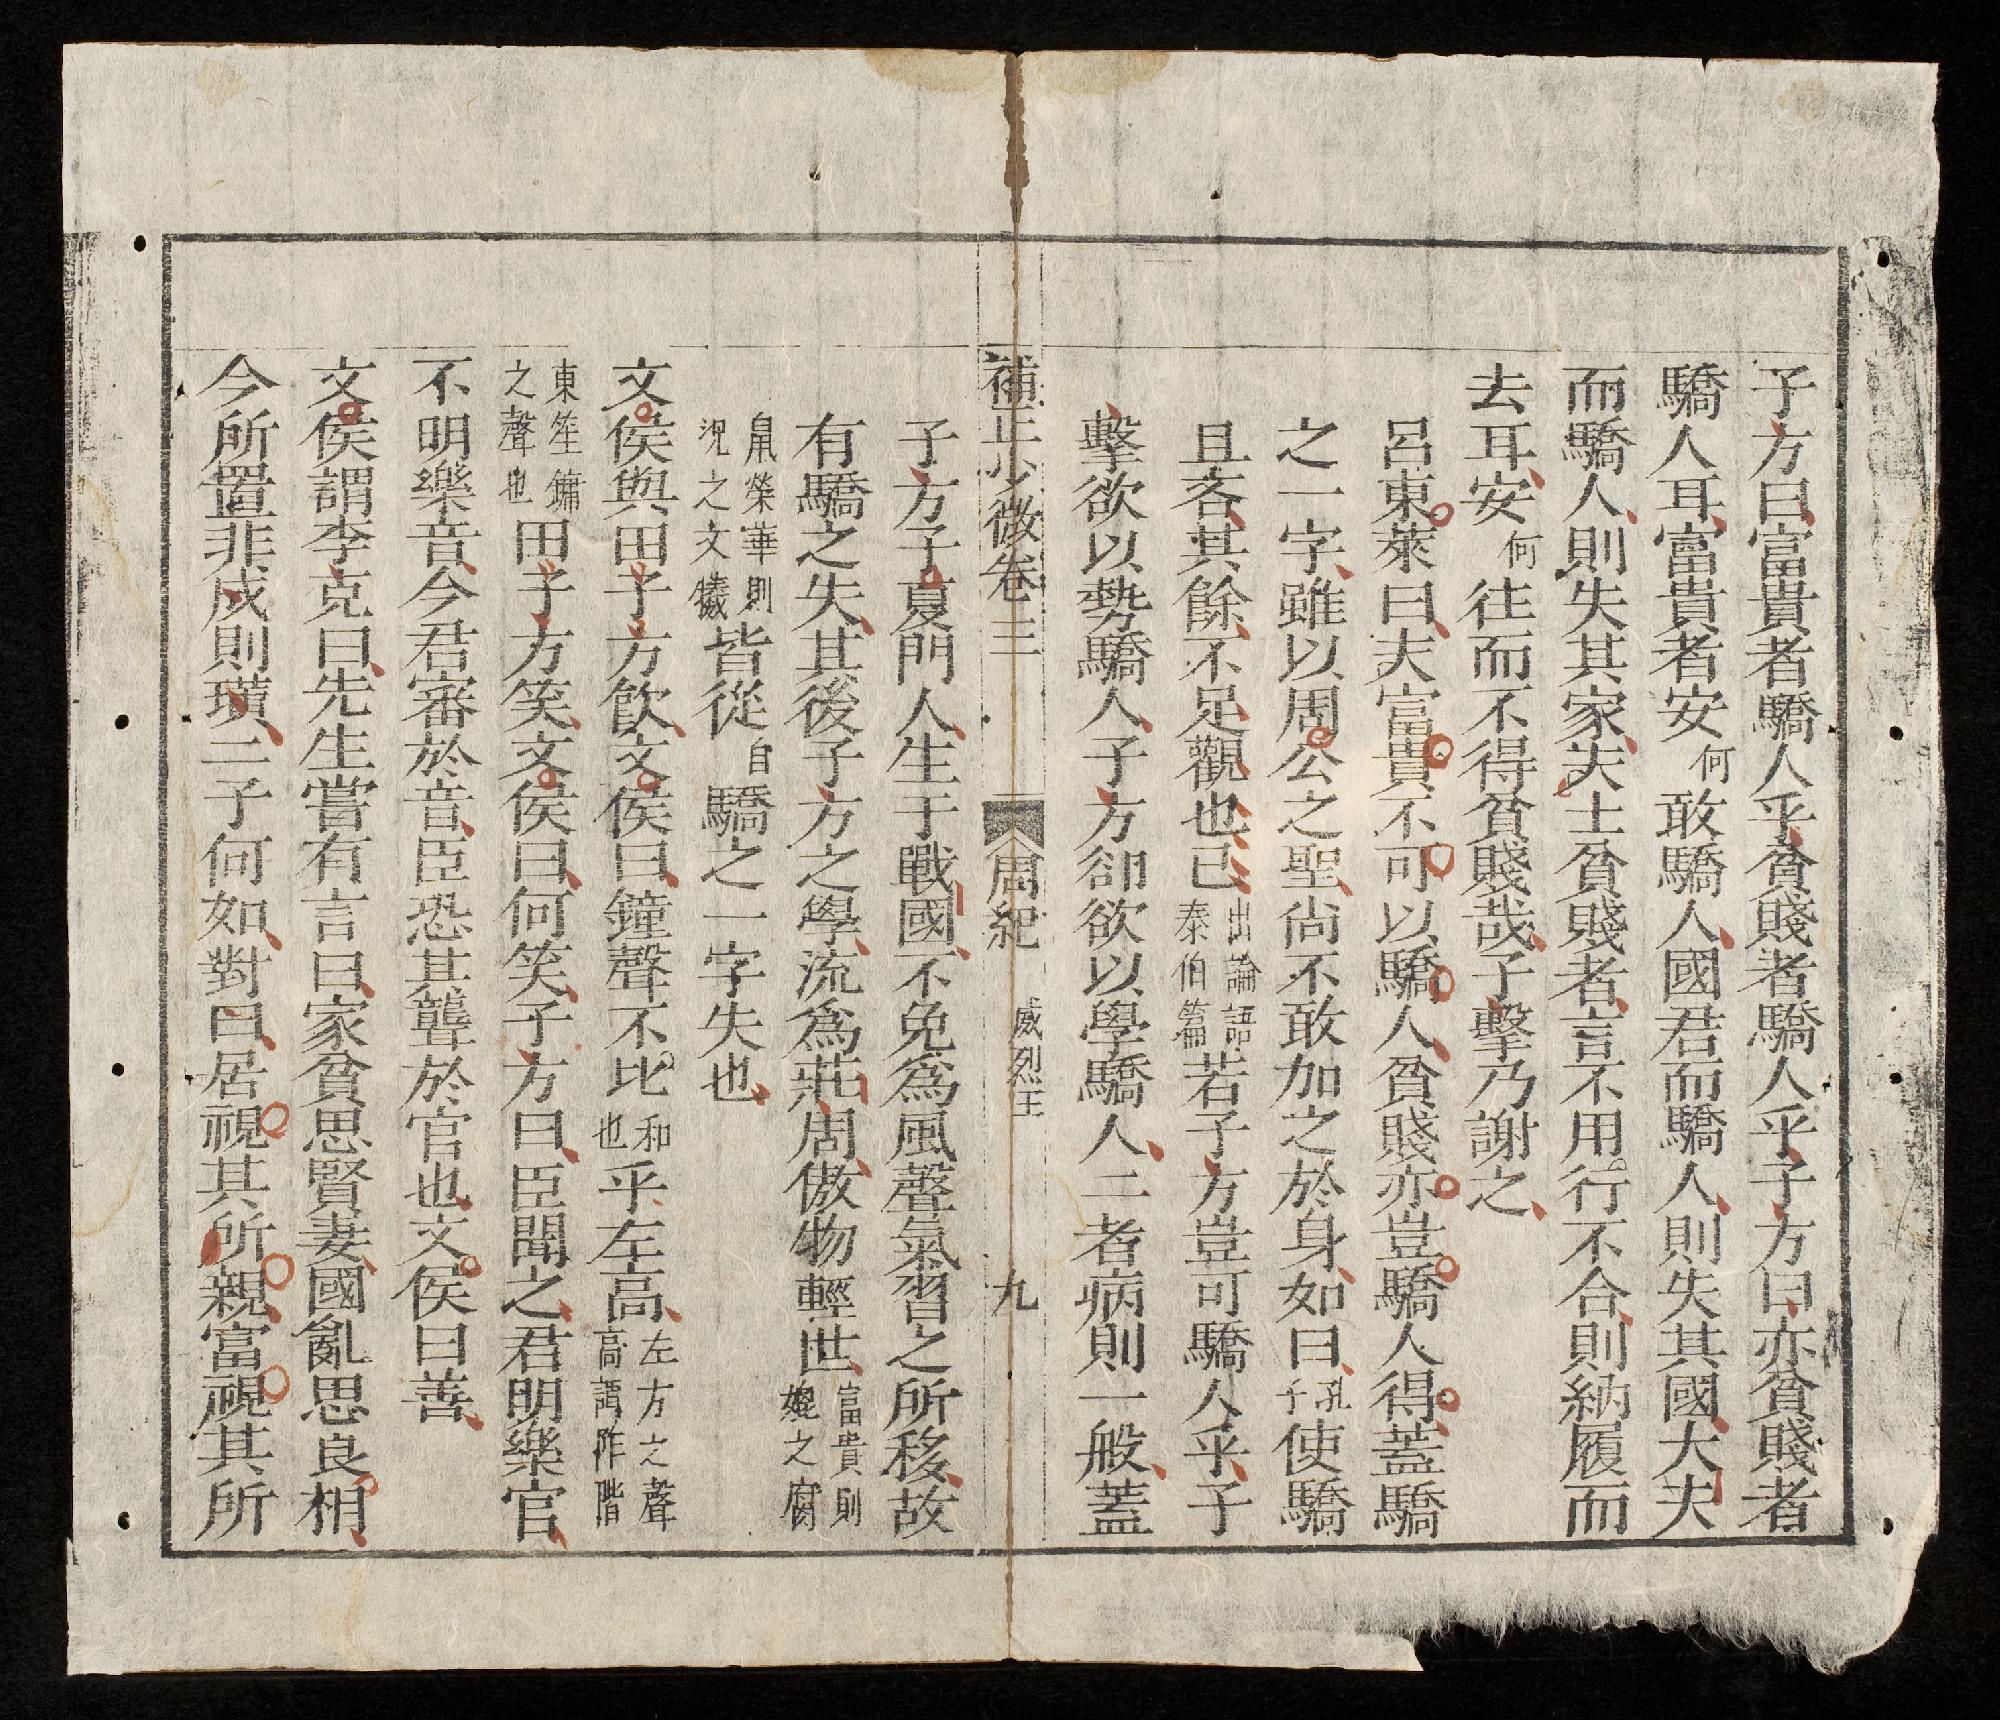 子方曰富貴者驕人乎貧賤者驕人乎子方曰亦貧賤者
驕人耳富貴者安何敢驕人國君而驕人則失其國大夫
而驕人則失其家夫士貧賤者言不用行不合則納履而
去耳安何往而不得貧賤哉子擊乃謝之
呂東萊曰夫富貴不可以驕人貧賤亦豈驕人得蓋驕
之一字雖以周公之聖尚不敢加之於身如曰孔子使驕
且吝其餘不足觀也已出論語泰伯篇若子方豈可驕人乎子
擊欲以勢驕人子方卻欲以學驕人二者病則一般蓋
補正少微卷三 周紀 威烈王 九
子方子夏門人生于戰國不免為風聲氣習之所移故
有驕之失其後子方之學流為莊周傲物輕世富貴則媲之腐
鼠榮華則況之文犧皆從自驕之一字失也
文侯與田子方飲文侯曰鐘聲不比和也乎左高左方之聲高謂阼階
東笙鏞之聲也田子方笑文侯曰何笑子方曰臣聞之君明樂官
不明樂音今君審於音臣恐其聾於官也文侯曰善
文侯謂李克曰先生嘗有言曰家貧思賢妻國亂思良相
今所置非成則璜二子何如對曰居視其所親富視其所